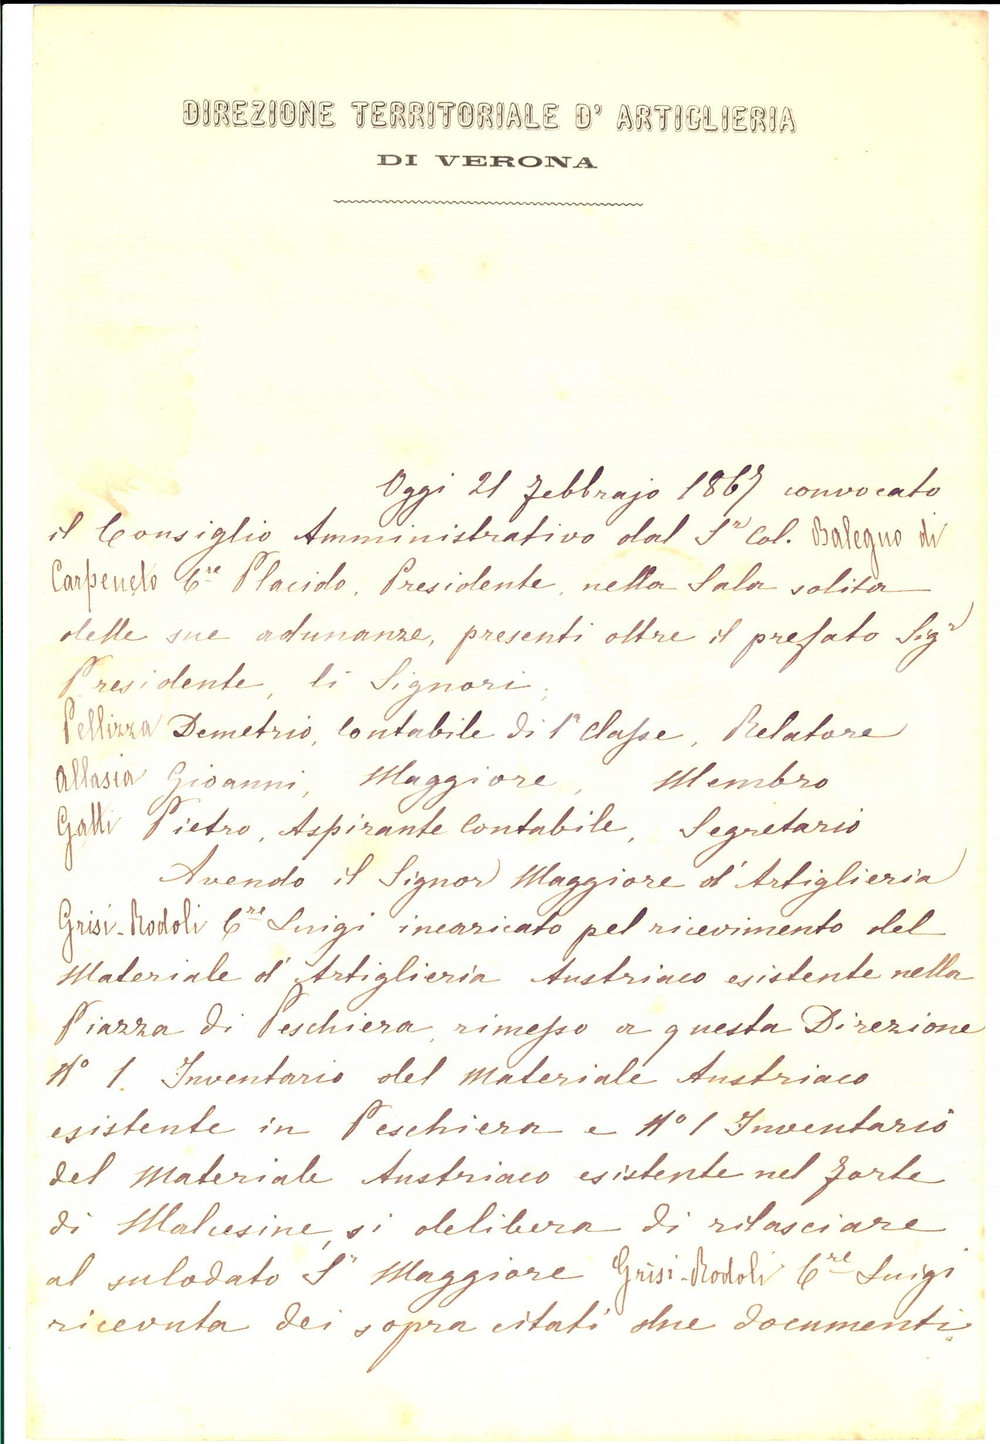 DIREZIONE TERRITORIALE D' ARTIGLIERIA
DI VERONA
Oggi 21 Febbrajo 1867 convocato
il Consiglio Amministrativo dal Sr Col. Balegno di
Carpeneto Cre Placido, Presidente, nella Sala solita
delle sue adunanze, presenti oltre il prefato Sigr
Presidente, li Signori;
Pellizza Demetrio, Contabile di 1a Classe, Relatore
Allasia Gioanni, Maggiore, Membro
Galli Pietro, Aspirante Contabile, Segretario
Avendo il Signor Maggiore d'Artiglieria
Grisi-Rodoli Cre Luigi incaricato pel ricevimento del
Materiale d'Artiglieria Austriaco esistente nella
Piazza di Peschiera, rimesso a questa Direzione
No 1. Inventario del Materiale Austriaco
esistente in Peschiera e No 1 Inventario
del Materiale Austriaco esistente nel forte
di Malcesine, si delibera di rilasciare
al sulodato Sr Maggiore Grisi-Rodoli Cre Luigi
ricevuta dei sopra citati due documenti.